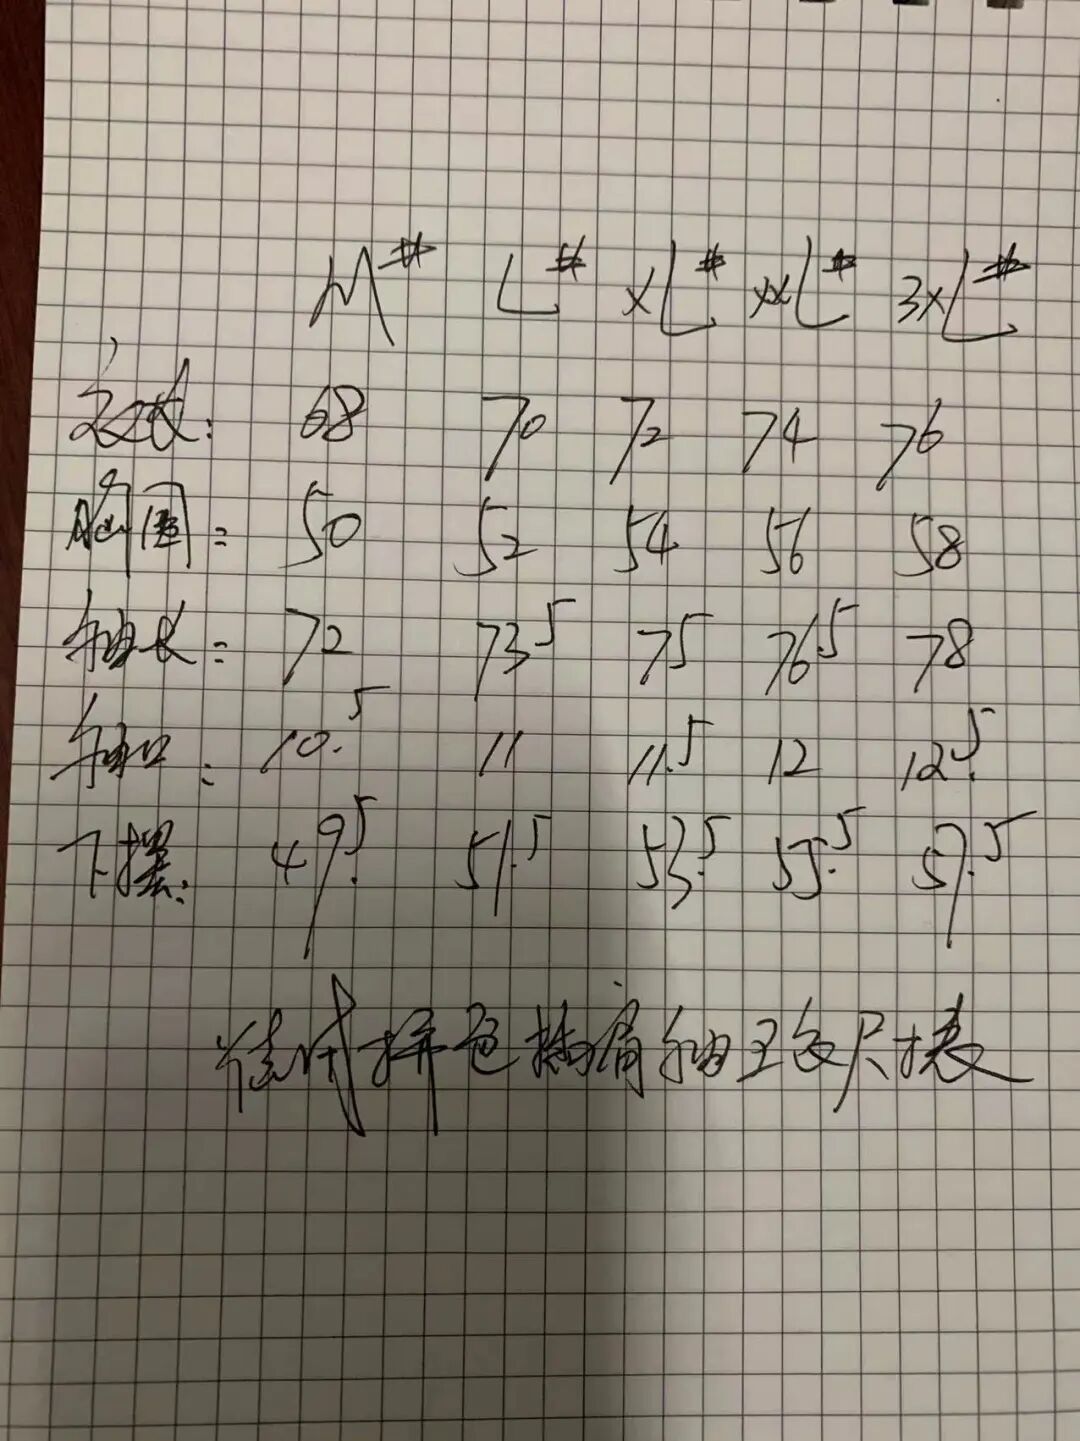 M# L# XL# XXL# 3XL#
衣长: 68 70 72 74 76
胸围: 50 52 54 56 58
袖长: 72 73.5 75 76.5 78
袖口: 10.5 11 11.5 12 12.5
下摆: 49.5 51.5 53.5 55.5 57.5
拼色插肩袖卫衣尺寸表